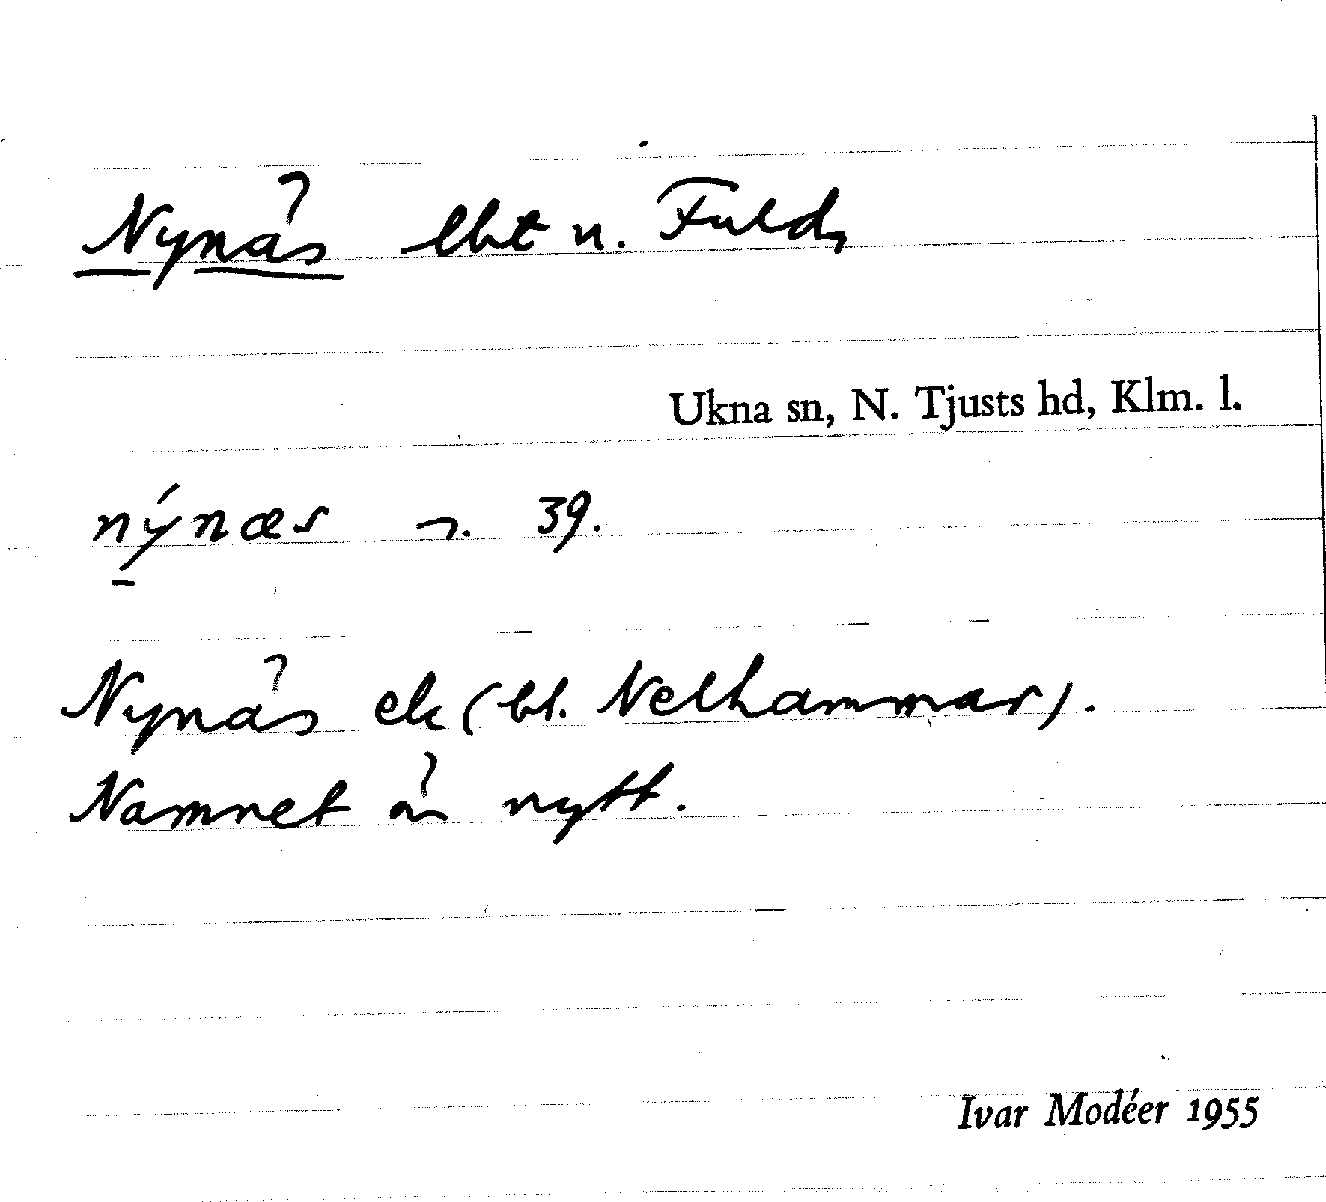 Nynäs lht u. Fuld,
Ukna sn, N. Tjusts hd, Klm. l.
nýnæs ⁊. 39.
Nynäs ek (bl. Nelhammar).
Namnet är nytt.
Ivar Modéer 1955